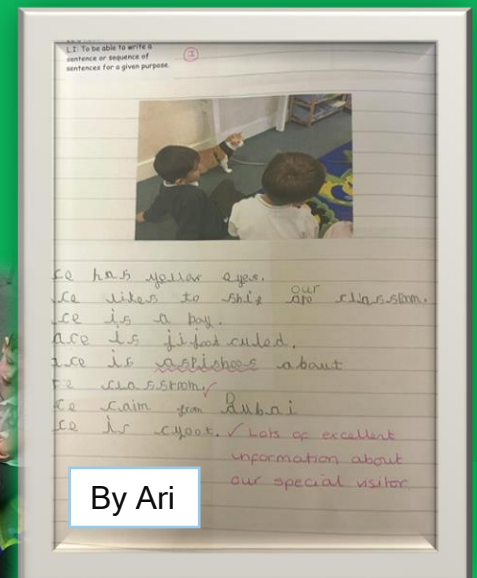 L.I: To be able to write a
sentence or sequence of
sentences for a given purpose.
I
ce has yellow eyes.
ce likes to our are classroom.
ce is a boy.
ace is
ace is about
classroom.
ce caim from Dubai
ce is cyoot. Lots of excellent
information about
our special visitor.
By Ari